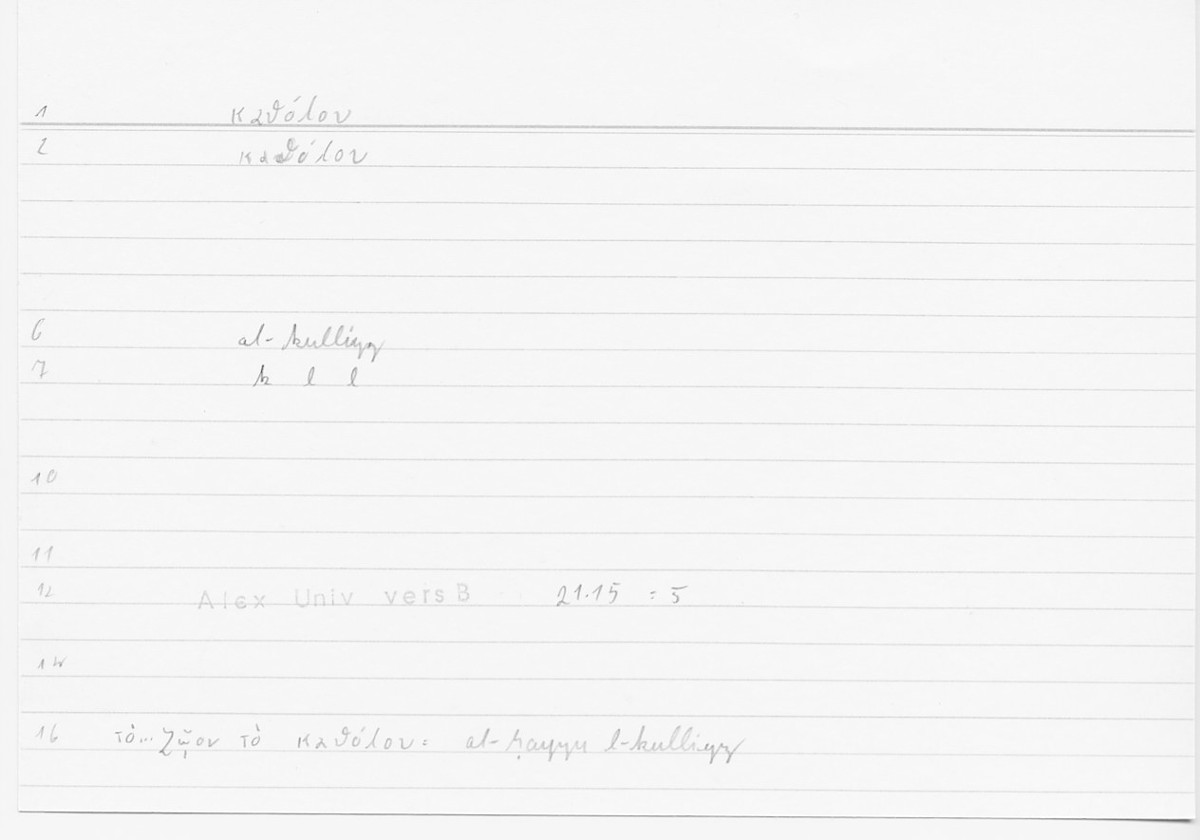 1 καθόλου
2 καθόλου
6 al-kulliyy
7 k l l
10
11
12 Alex Univ vers B 21.15 = 5
14
16 τὸ... ζῷον τὸ καθόλου = al-ḥayyu l-kulliyy